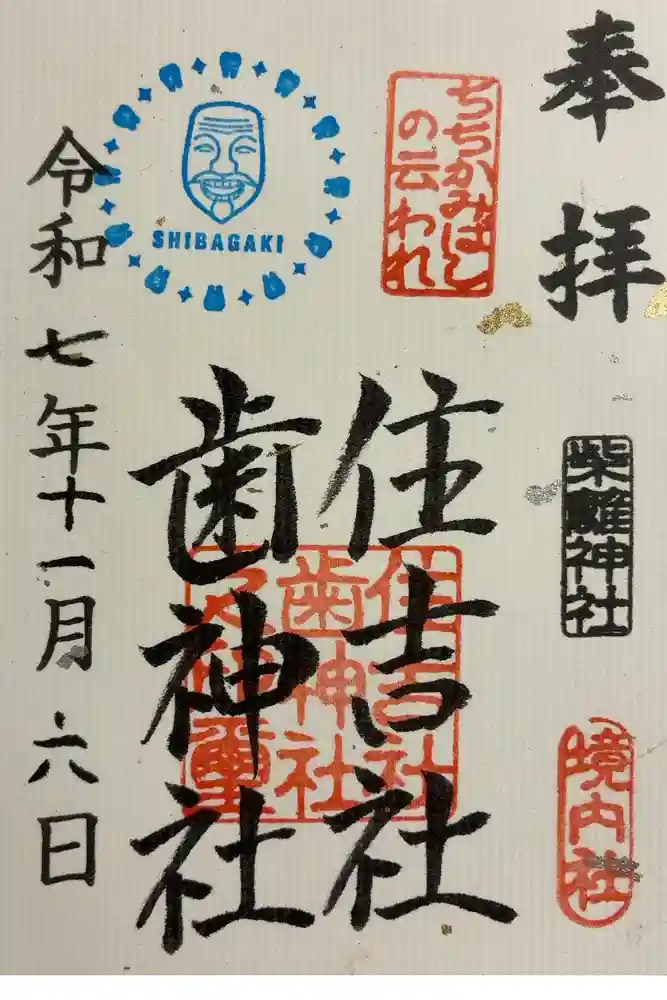 奉拝
柴籬神社
境内社
ちちかみばし
の云われ
住吉社
歯神社
住吉社
歯神社
之神璽
SHIBAGAKI
令和七年十一月六日